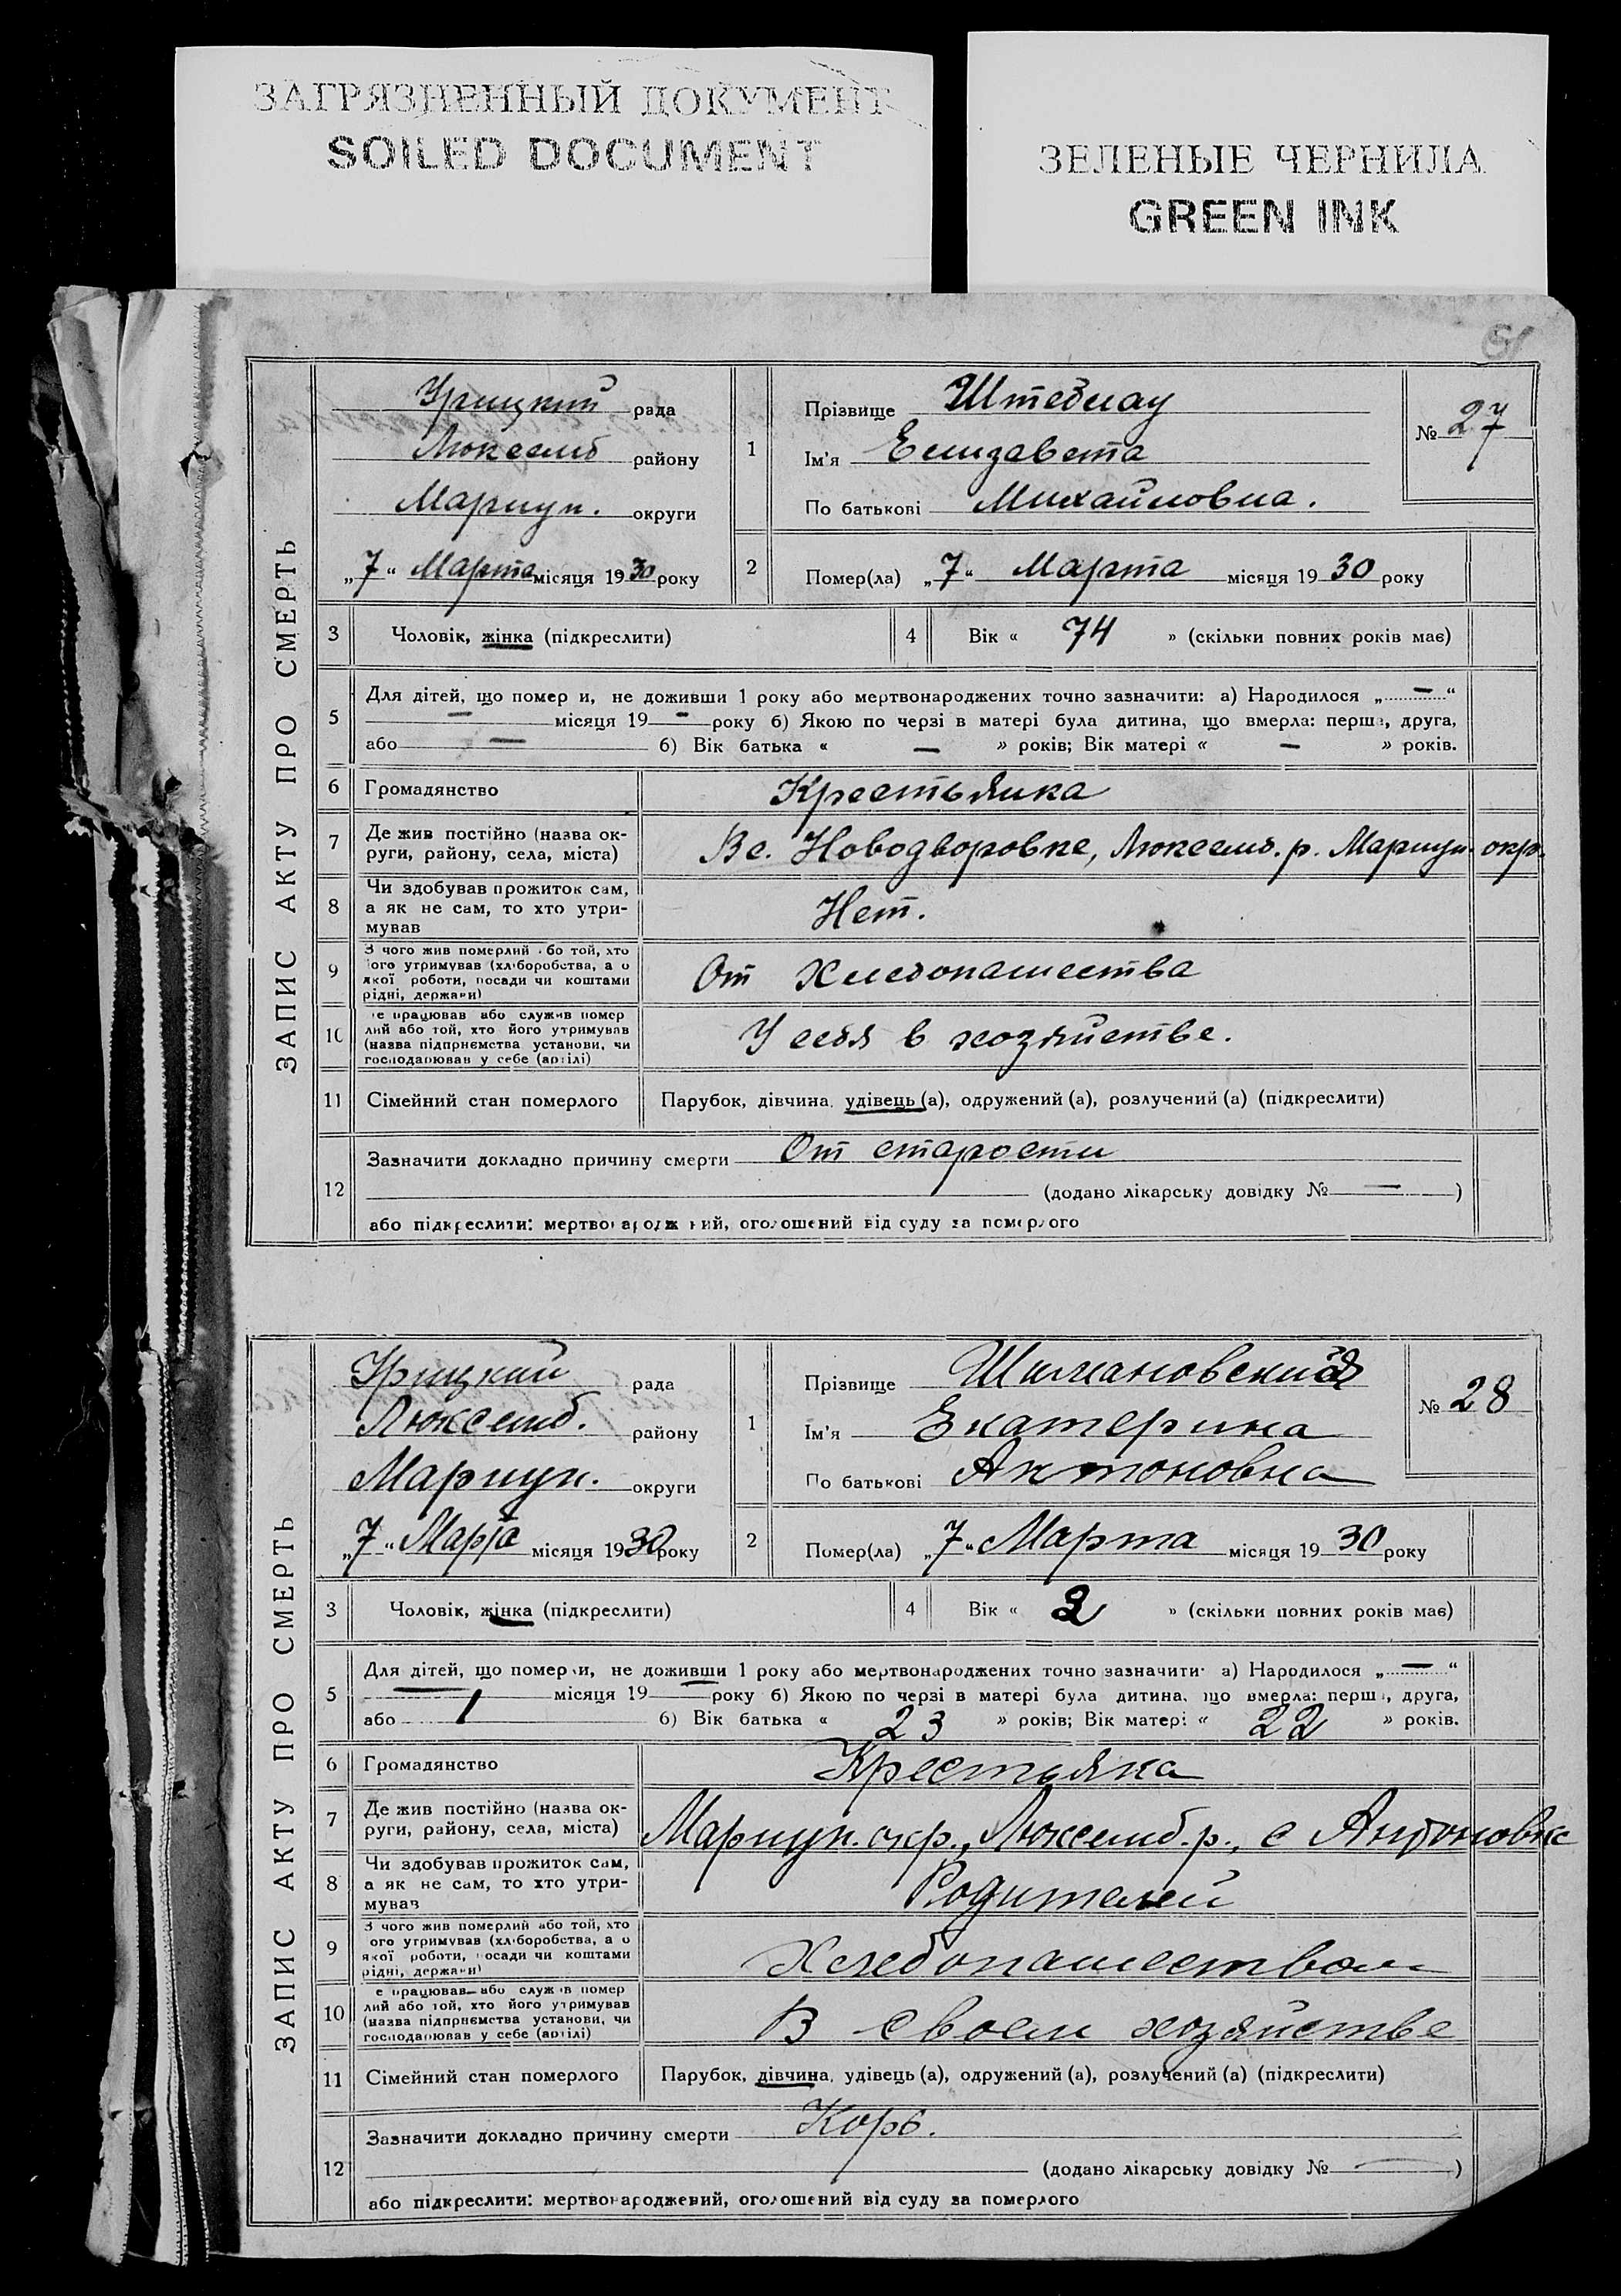 ЗАГРЯЗНЕННЫЙ ДОКУМЕНТ
SOILED DOCUMENT
ЗЕЛЕНЫЕ ЧЕРНИЛА
GREEN INK
ЗАПИС АКТУ ПРО СМЕРТЬ
Урицкий рада
Люксемб району
Мариуп. округи
„7“ Марта місяця 1930 року
1
Прізвище Штебнау
Ім'я Елизавета
По батькові Михайловна.
№ 27
2
Помер(ла) „7“ Марта місяця 1930 року
3 Чоловік, жінка (підкреслити)
4 Вік « 74 » (скільки повних років має)
5
Для дітей, що помер и, не доживши 1 року або мертвонароджених точно зазначити: а) Народилося „ — “
— місяця 19 — року б) Якою по черзі в матері була дитина, що вмерла: перша, друга,
або — б) Вік батька « — » років; Вік матері « — » років.
6 Громадянство Крестьянка
7 Де жив постійно (назва ок-
руги, району, села, міста) В с. Новодворовке, Люксемб. р. Мариуп. окр.
8 Чи здобував прожиток сам,
а як не сам, то хто утри-
мував Нет.
9 З чого жив померлий або той, хто
ого утримував (хліборобства, а о
якої роботи, посади чи коштами
рідні, держави) От хлебопашества
10 е працював або служив помер
лий або той, хто його утримував
(назва підприємства установи, чи
господарював у себе (артілі) У себя в хозяйстве.
11 Сімейний стан померлого Парубок, дівчина, удівець (а), одружений (а), розлучений (а) (підкреслити)
12
Зазначити докладно причину смерти От старости
(додано лікарську довідку № — )
або підкреслити: мертвонароджений, оголошений від суду за померлого
ЗАПИС АКТУ ПРО СМЕРТЬ
Урицкий рада
Люксемб. району
Мариуп. округи
„7“ Марта місяця 1930 року
1
Прізвище
Ім'я Екатерина
По батькові Антоновна
№ 28
2
Помер(ла) „7“ Марта місяця 1930 року
3 Чоловік, жінка (підкреслити)
4 Вік « » (скільки повних років має)
5
Для дітей, що померли, не доживши 1 року або мертвонароджених точно зазначити: а) Народилося „ — “
— місяця 19 — року б) Якою по черзі в матері була дитина, що вмерла: перша, друга,
або 1 б) Вік батька « 23 » років; Вік матері « 22 » років.
6 Громадянство Крестьянка
7 Де жив постійно (назва ок-
руги, району, села, міста) Мариуп. окр., Люксемб. р., с Антоновке
8 Чи здобував прожиток сам,
а як не сам, то хто утри-
мував Родителей
9 З чого жив померлий або той, хто
ого утримував (хліборобства, а о
якої роботи, посади чи коштами
рідні, держави) Хлебопашеством
10 е працював або служив помер
лий або той, хто його утримував
(назва підприємства установи, чи
господарював у себе (артілі) В своем хозяйстве
11 Сімейний стан померлого Парубок, дівчина, удівець (а), одружений (а), розлучений (а) (підкреслити)
12
Зазначити докладно причину смерти Корь.
(додано лікарську довідку № — )
або підкреслити: мертвонароджений, оголошений від суду за померлого